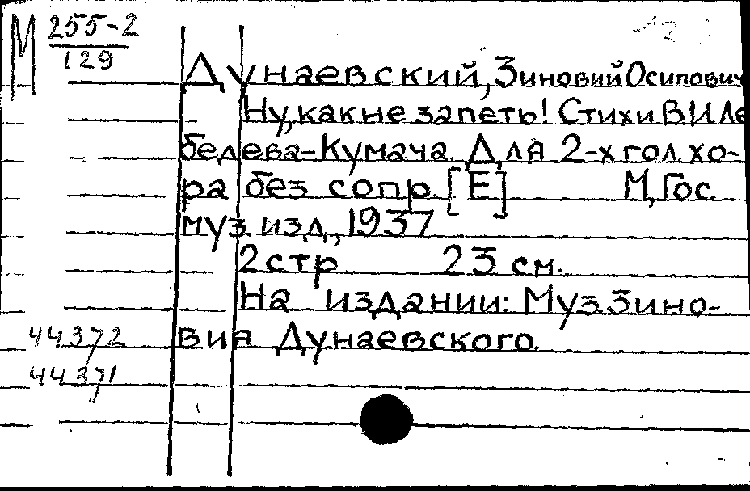 М 255-2
129
Дунаевский, Зиновий Осипович
Ну, как не запеть! Стихи В.И.Ле
бедева-Кумача. Для 2-х гол. хо-
ра без сопр. [Е] М., Гос.
муз. изд., 1937
2 стр 23 см.
На издании: Муз. Зино-
44372 вия Дунаевского.
44371